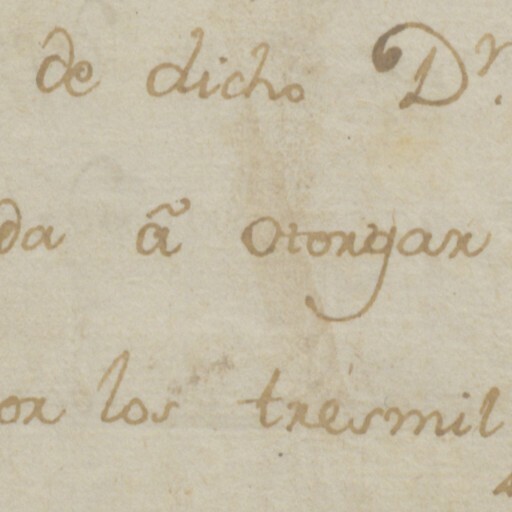 de dicho Dr.
da â otorgar
or los tresmil